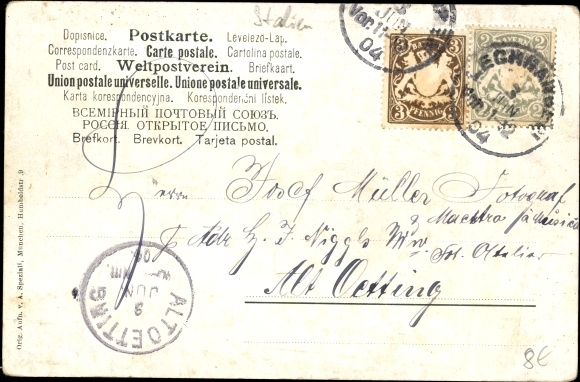 Italien
Dopisnice. Postkarte. Levelező-Lap.
Correspondenzkarte. Carte postale. Cartolina postale.
Post card. Weltpostverein. Briefkaart.
Union postale universelle. Unione postale universale.
Karta korespondencyjna. Korespondenční lístek.
ВСЕМІРНЫЙ ПОЧТОВЫЙ СОЮЗЪ.
РОССІЯ. ОТКРЫТОЕ ПИСЬМО.
Brefkort. Brevkort. Tarjeta postal.
JUN
Vor. 11-
04
3 3
PFENNIG
BAYERN
2 2
JUN
04
Herrn Josef Müller Fotograf
& Maestro
Adr H. J. Niggls Ww. St. Ottilien
Alt Oetting
ALTOETTING
3
JUN
Nm.
04
Orig. Aufn. v. A. Speziali, München, Humboldstr. 9
8€